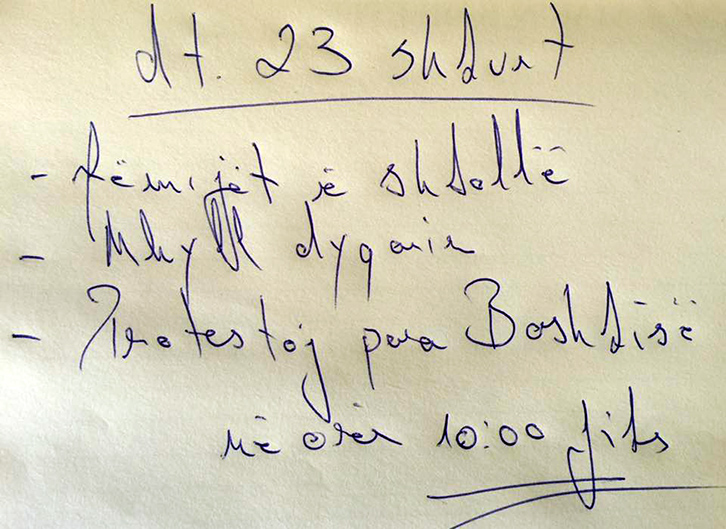 dt. 23 shkurt
- fëmijët në shkollë
- Mbyll dyqanin
- Protestoj para Bashkisë
në orën 10:00 fiks